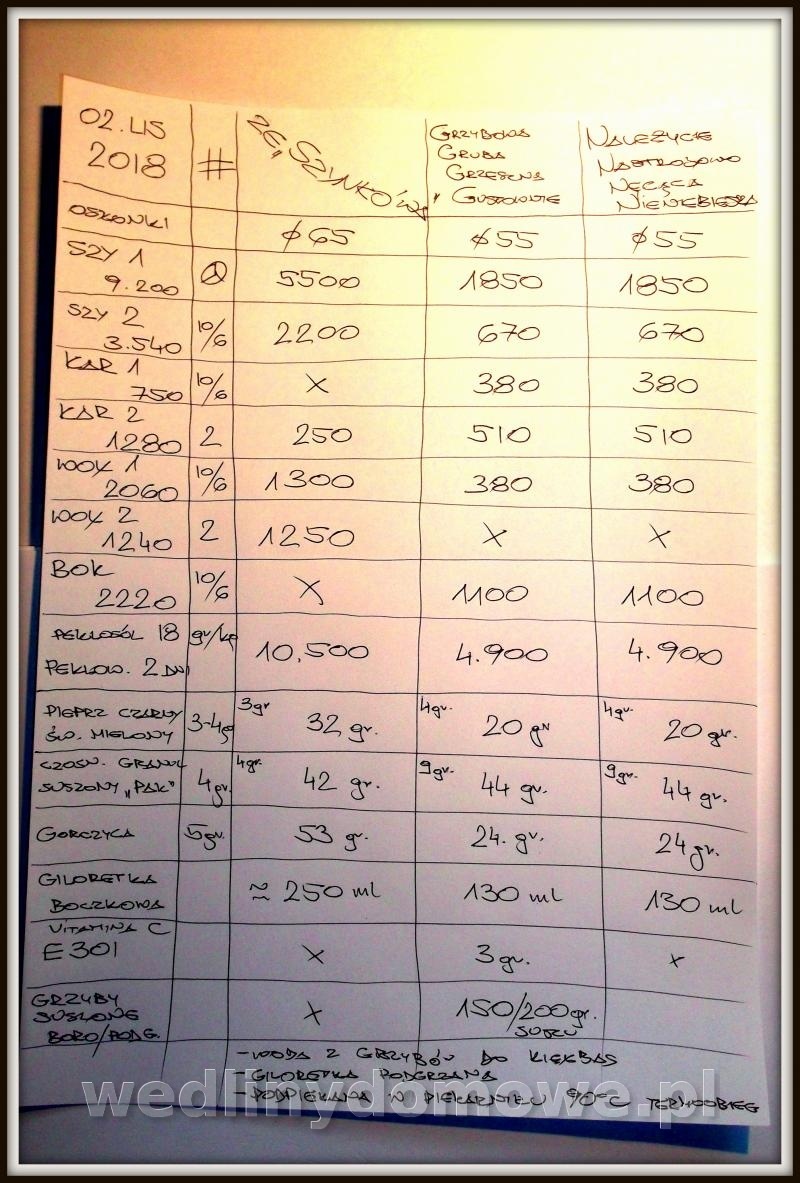 02.LIS
2018
#
ZE „SZYNKÓWA"
GRZYBOWA
GRUBA
GRZESZNA
GUSTOWNIE
NALEŻYCIE
NASTROJOWO
NĘCĄCA
NIENIEBIESKA
OSŁONKI ø65 ø55 ø55
SZY 1
9.200 5500 1850 1850
SZY 2
3.540 10/6 2200 670 670
KAR 1
750 10/6 X 380 380
KAR 2
1280 2 250 510 510
WOŁ 1
2060 10/6 1300 380 380
WOŁ 2
1240 2 1250 X X
BOK
2220 10/6 X 1100 1100
PEKLOSÓL 18 gr/kg
PEKLOW. 2 DNI 10,500 4.900 4.900
PIEPRZ CZARNY 3gr 4gr. 4gr.
ŚW. MIELONY 3-4g 32 gr. 20 gr 20 gr.
CZOSN. GRANUL 4gr. 9gr. 9gr.
SUSZONY „PAK" 4gr. 42 gr. 44 gr. 44 gr.
GORCZYCA 5gr. 53 gr. 24. gr. 24 gr.
GILORETKA
BOCZKOWA ≈ 250 ml 130 ml 130 ml
VITAMINA C
E 301 X 3 gr. X
GRZYBY
SUSZONE
BORO/PODG. X 150/200gr.
SUSZU
- WODA Z GRZYBÓW DO KIEŁBAS
- GILORETKA PODGRZANA
- PODPIEKANA W PIEKARNIKU 90°C TERMOOBIEG
wedlinydomowe.pl